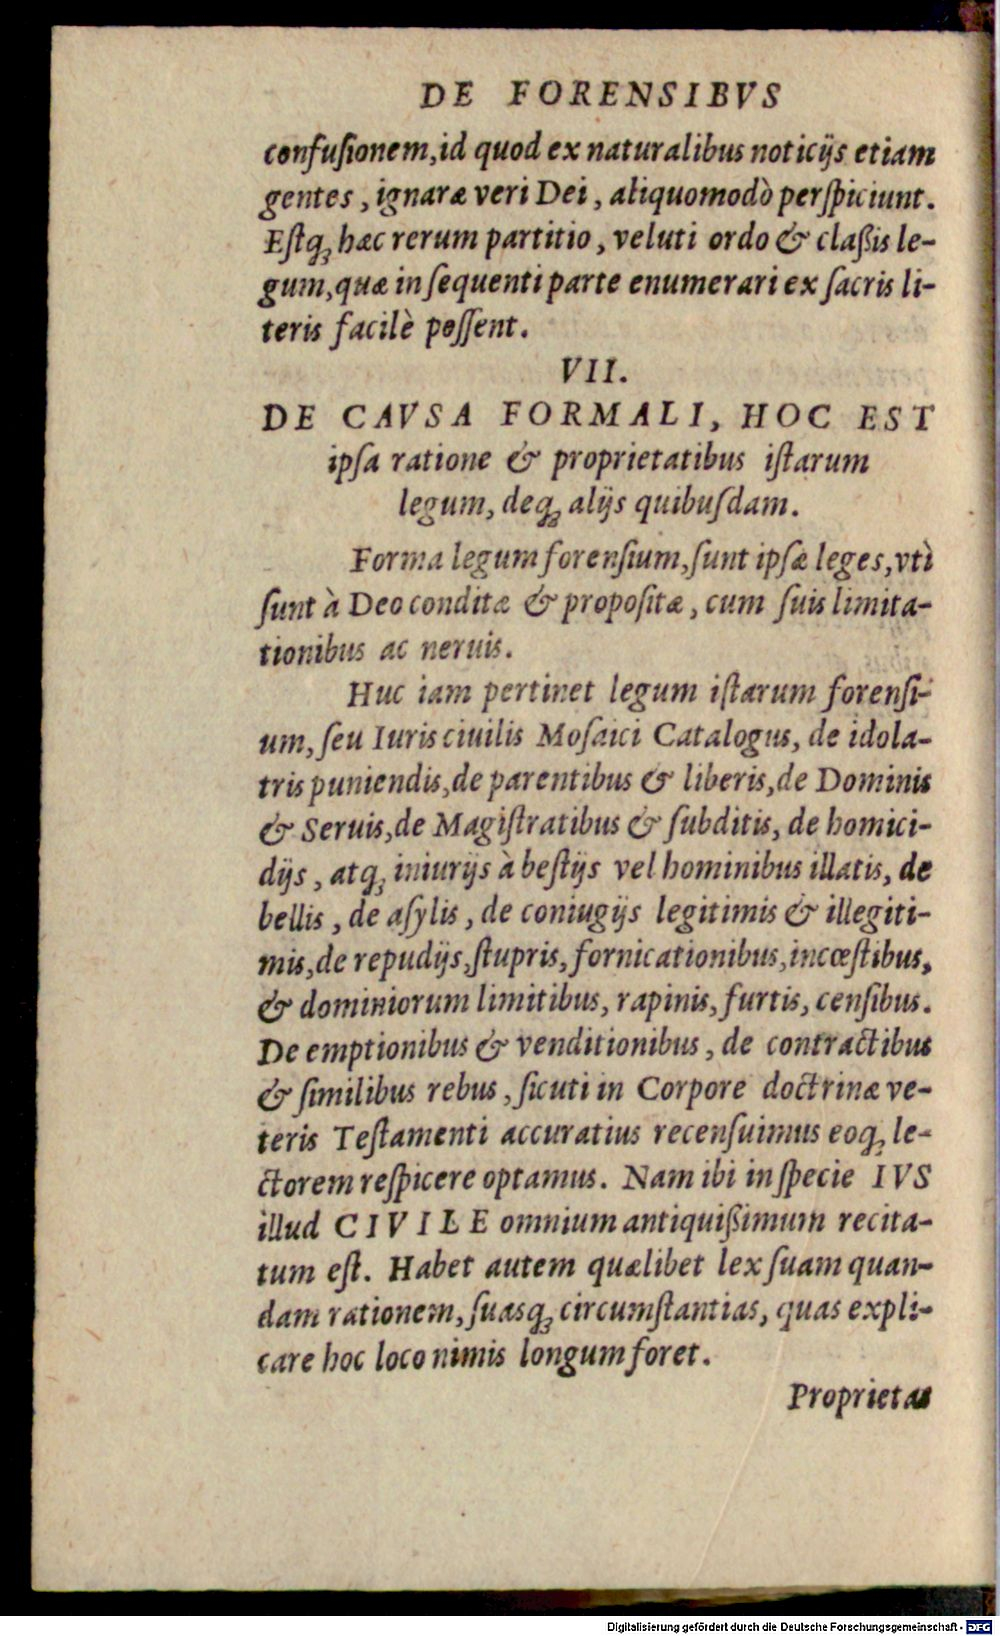 DE FORENSIBVS
confuſionem,id quod ex naturalibus noticijs etiam
gentes , ignaræ veri Dei , aliquomodò perſpiciunt.
Eſtq́; hæc rerum partitio , veluti ordo & claßis le-
gum,quæ in ſequenti parte enumerari ex ſacris li-
teris facilè poſſent.
VII.
DE CAVSA FORMALI, HOC EST
ipſa ratione & proprietatibus iſtarum
legum, deq́; alijs quibuſdam.
Forma legum forenſium,ſunt ipſæ leges,vtì
ſunt à Deo conditæ & propoſitæ , cum ſuis limita-
tionibus ac neruis.
Huc iam pertinet legum iſtarum forenſi-
um, ſeu Iuris ciuilis Moſaici Catalogus, de idola-
tris puniendis,de parentibus & liberis,de Dominis
& Seruis,de Magiſtratibus & ſubditis, de homici-
dijs , atq́; iniurijs à beſtijs vel hominibus illatis, de
bellis , de aſylis , de coniugijs legitimis & illegiti-
mis,de repudijs,ſtupris, fornicationibus,incœſtibus,
& dominiorum limitibus, rapinis, furtis, cenſibus.
De emptionibus & venditionibus , de contractibus
& ſimilibus rebus , ſicuti in Corpore doctrinæ ve-
teris Teſtamenti accuratius recenſuimus eoq́; le-
ctorem reſpicere optamus. Nam ibi in ſpecie IVS
illud CIVILE omnium antiquißimum recita-
tum eſt. Habet autem quælibet lex ſuam quan-
dam rationem, ſuasq́; circumſtantias, quas expli-
care hoc loco nimis longum foret.
Proprietas
Digitalisierung gefördert durch die Deutsche Forschungsgemeinschaft - DFG